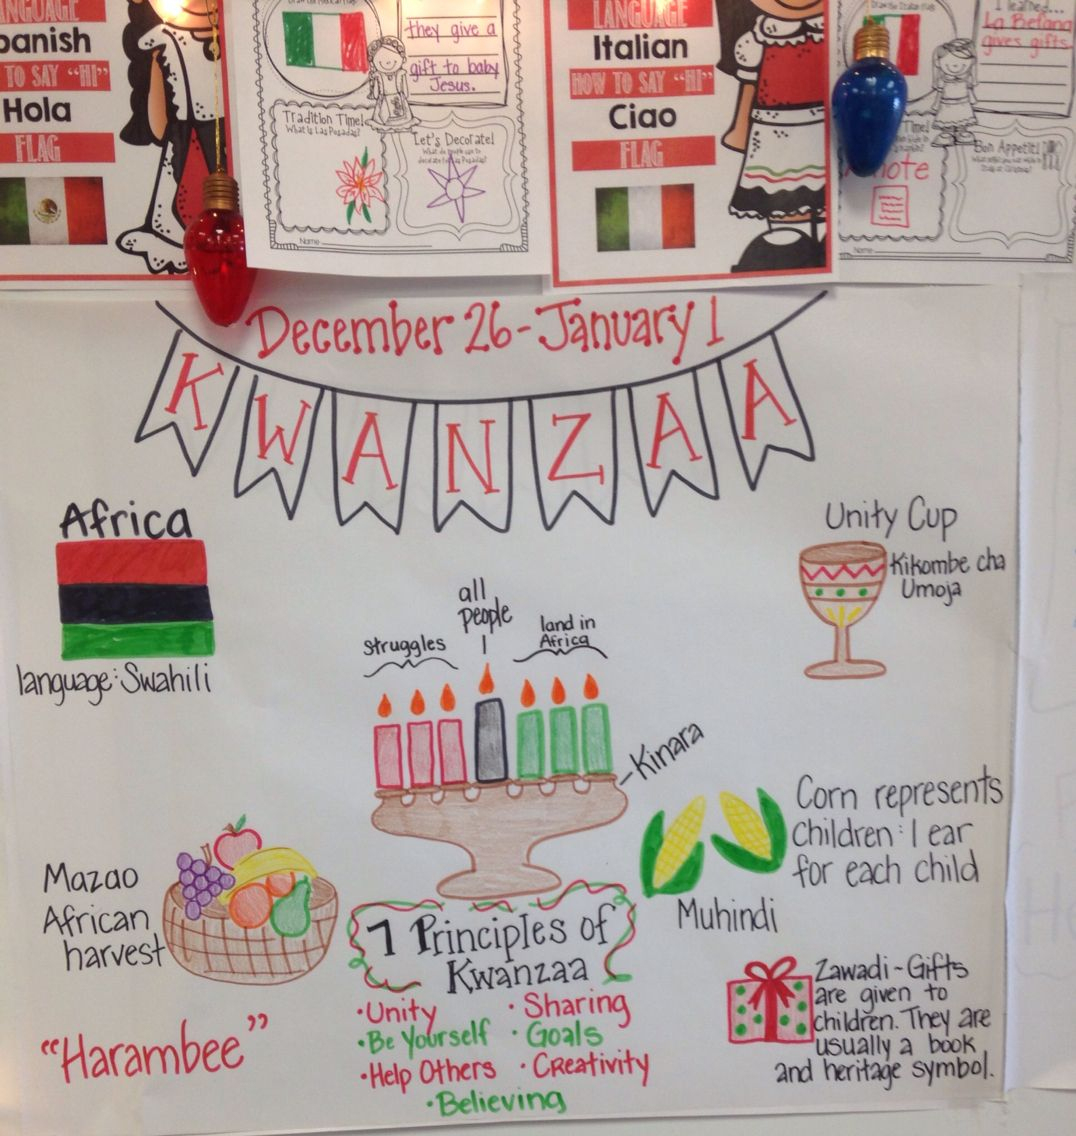 LANGUAGE
panish
TO SAY "HI"
Hola
FLAG
they give a
gift to baby
Jesus.
Tradition Time!
What is Las Posadas?
Let's Decorate!
Name
LANGUAGE
Italian
HOW TO SAY "HI"
Ciao
FLAG
I learned...
La Befana
gives gifts
Time!
note
Bon Appetit!
Name
December 26-January 1
KWANZAA
Africa
language: Swahili
Unity Cup
Kikombe cha
Umoja
struggles
all
people
land in
Africa
Kinara
Mazao
African
harvest
Corn represents
children: 1 ear
for each child
Muhindi
7 Principles of
Kwanzaa
• Unity • Sharing
• Be Yourself • Goals
• Help Others • Creativity
• Believing
"Harambee"
Zawadi-Gifts
are given to
children. They are
usually a book
and heritage symbol.